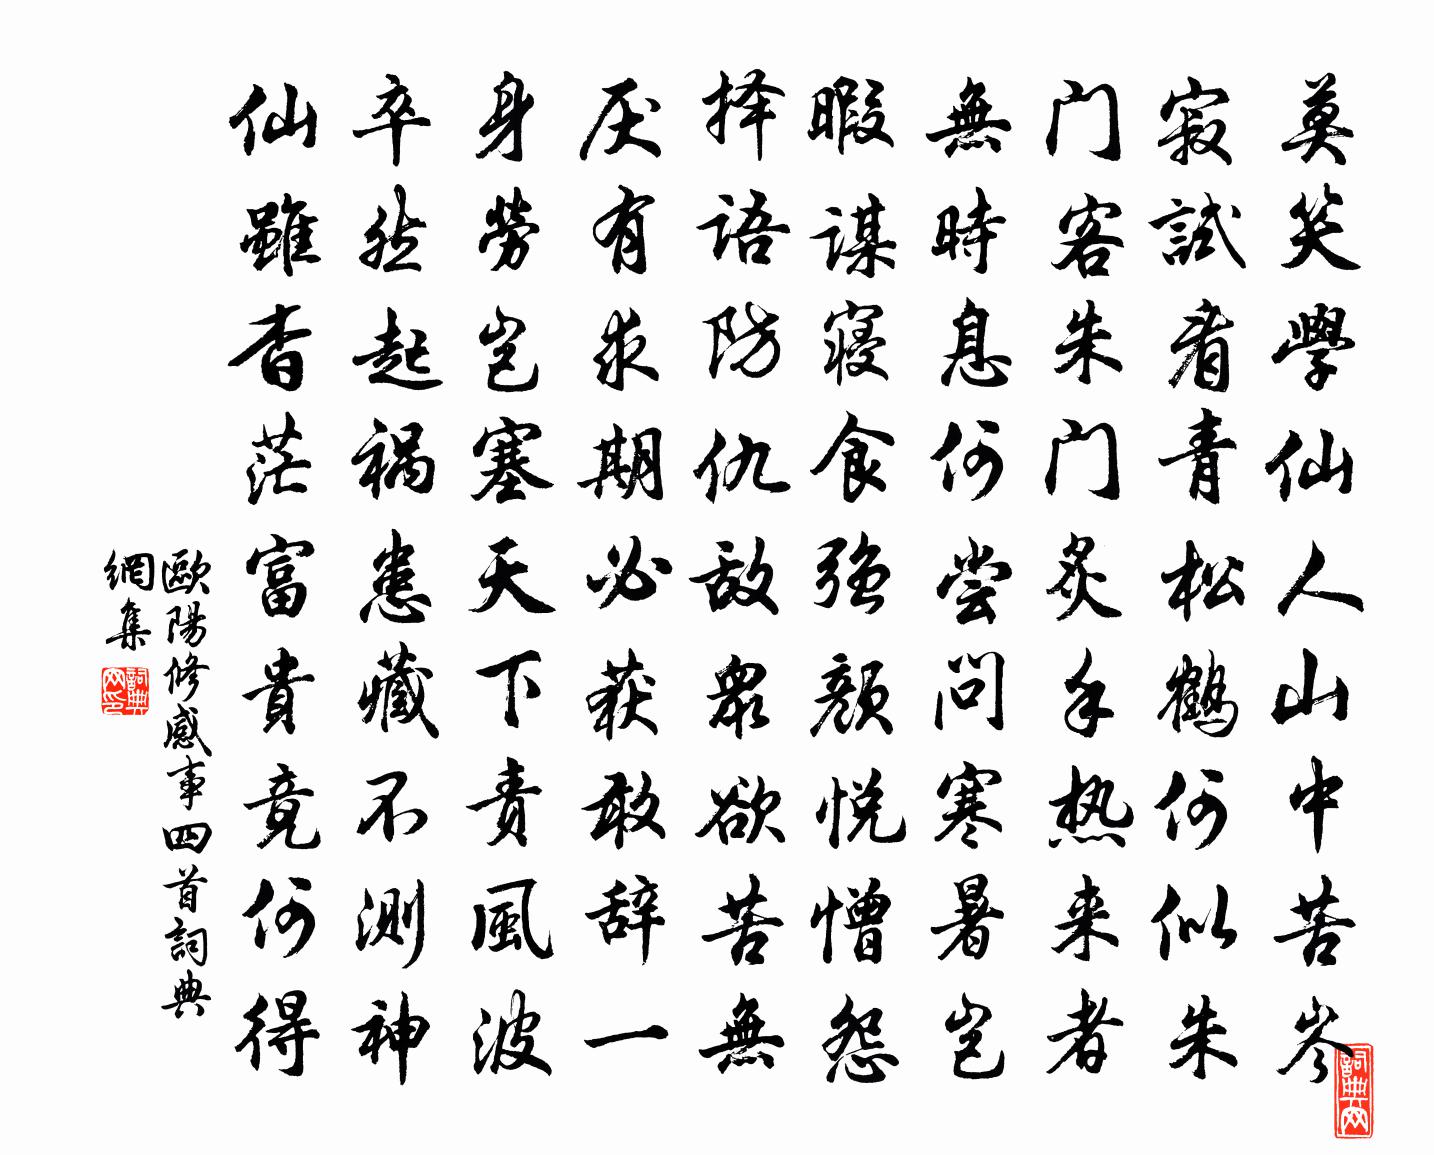 莫笑學仙人山中苦岑
寂試看青松鶴何似朱
门客朱门炙手热来者
無時息何尝问寒暑岂
暇谋寝食强颜悦憎怨
择语防仇敌眾欲苦無
厌有求期必获敢辞一
身勞岂塞天下责風波
卒然起祸患藏不测神
仙雖杳茫富貴竟何得
歐陽修感事四首詞典
網集
詞典网印
詞典网